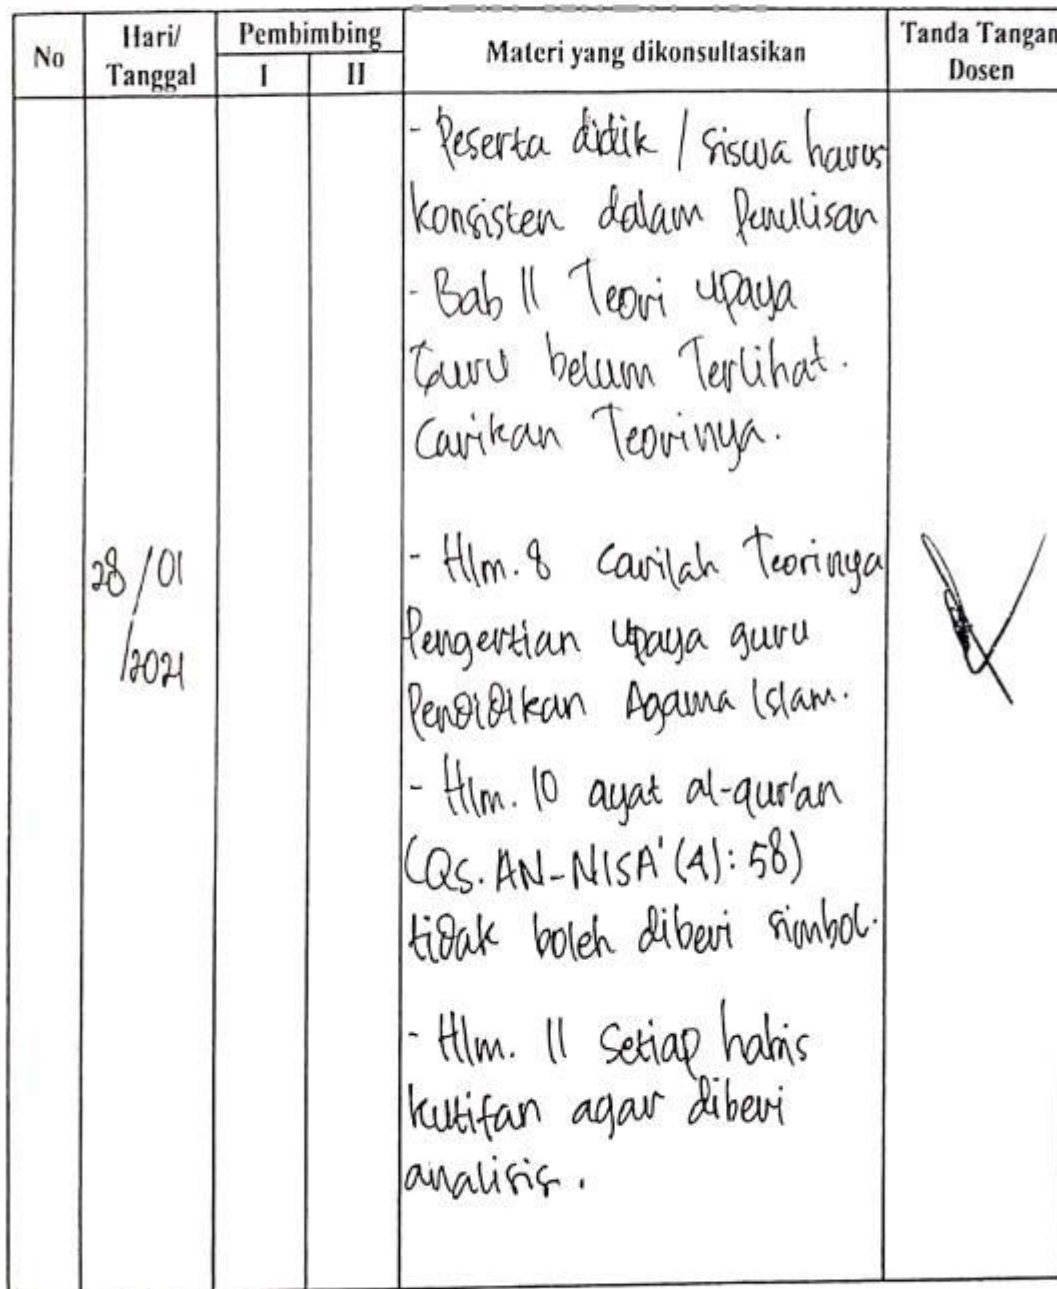 No
Hari/
Tanggal
Pembimbing
I
II
Materi yang dikonsultasikan
Tanda Tangan
Dosen
28/01
/2021
- Peserta didik / siswa harus
konsisten dalam Penulisan
- Bab II Teori upaya
Guru belum Terlihat.
Carikan Teorinya.
- Hlm. 8 Carilah Teorinya
Pengertian upaya guru
Pendidikan Agama Islam.
- Hlm. 10 ayat al-qur'an
(Qs. AN-NISA' (4): 58)
tidak boleh diberi simbol.
- Hlm. 11 Setiap habis
kutifan agar diberi
analisis.